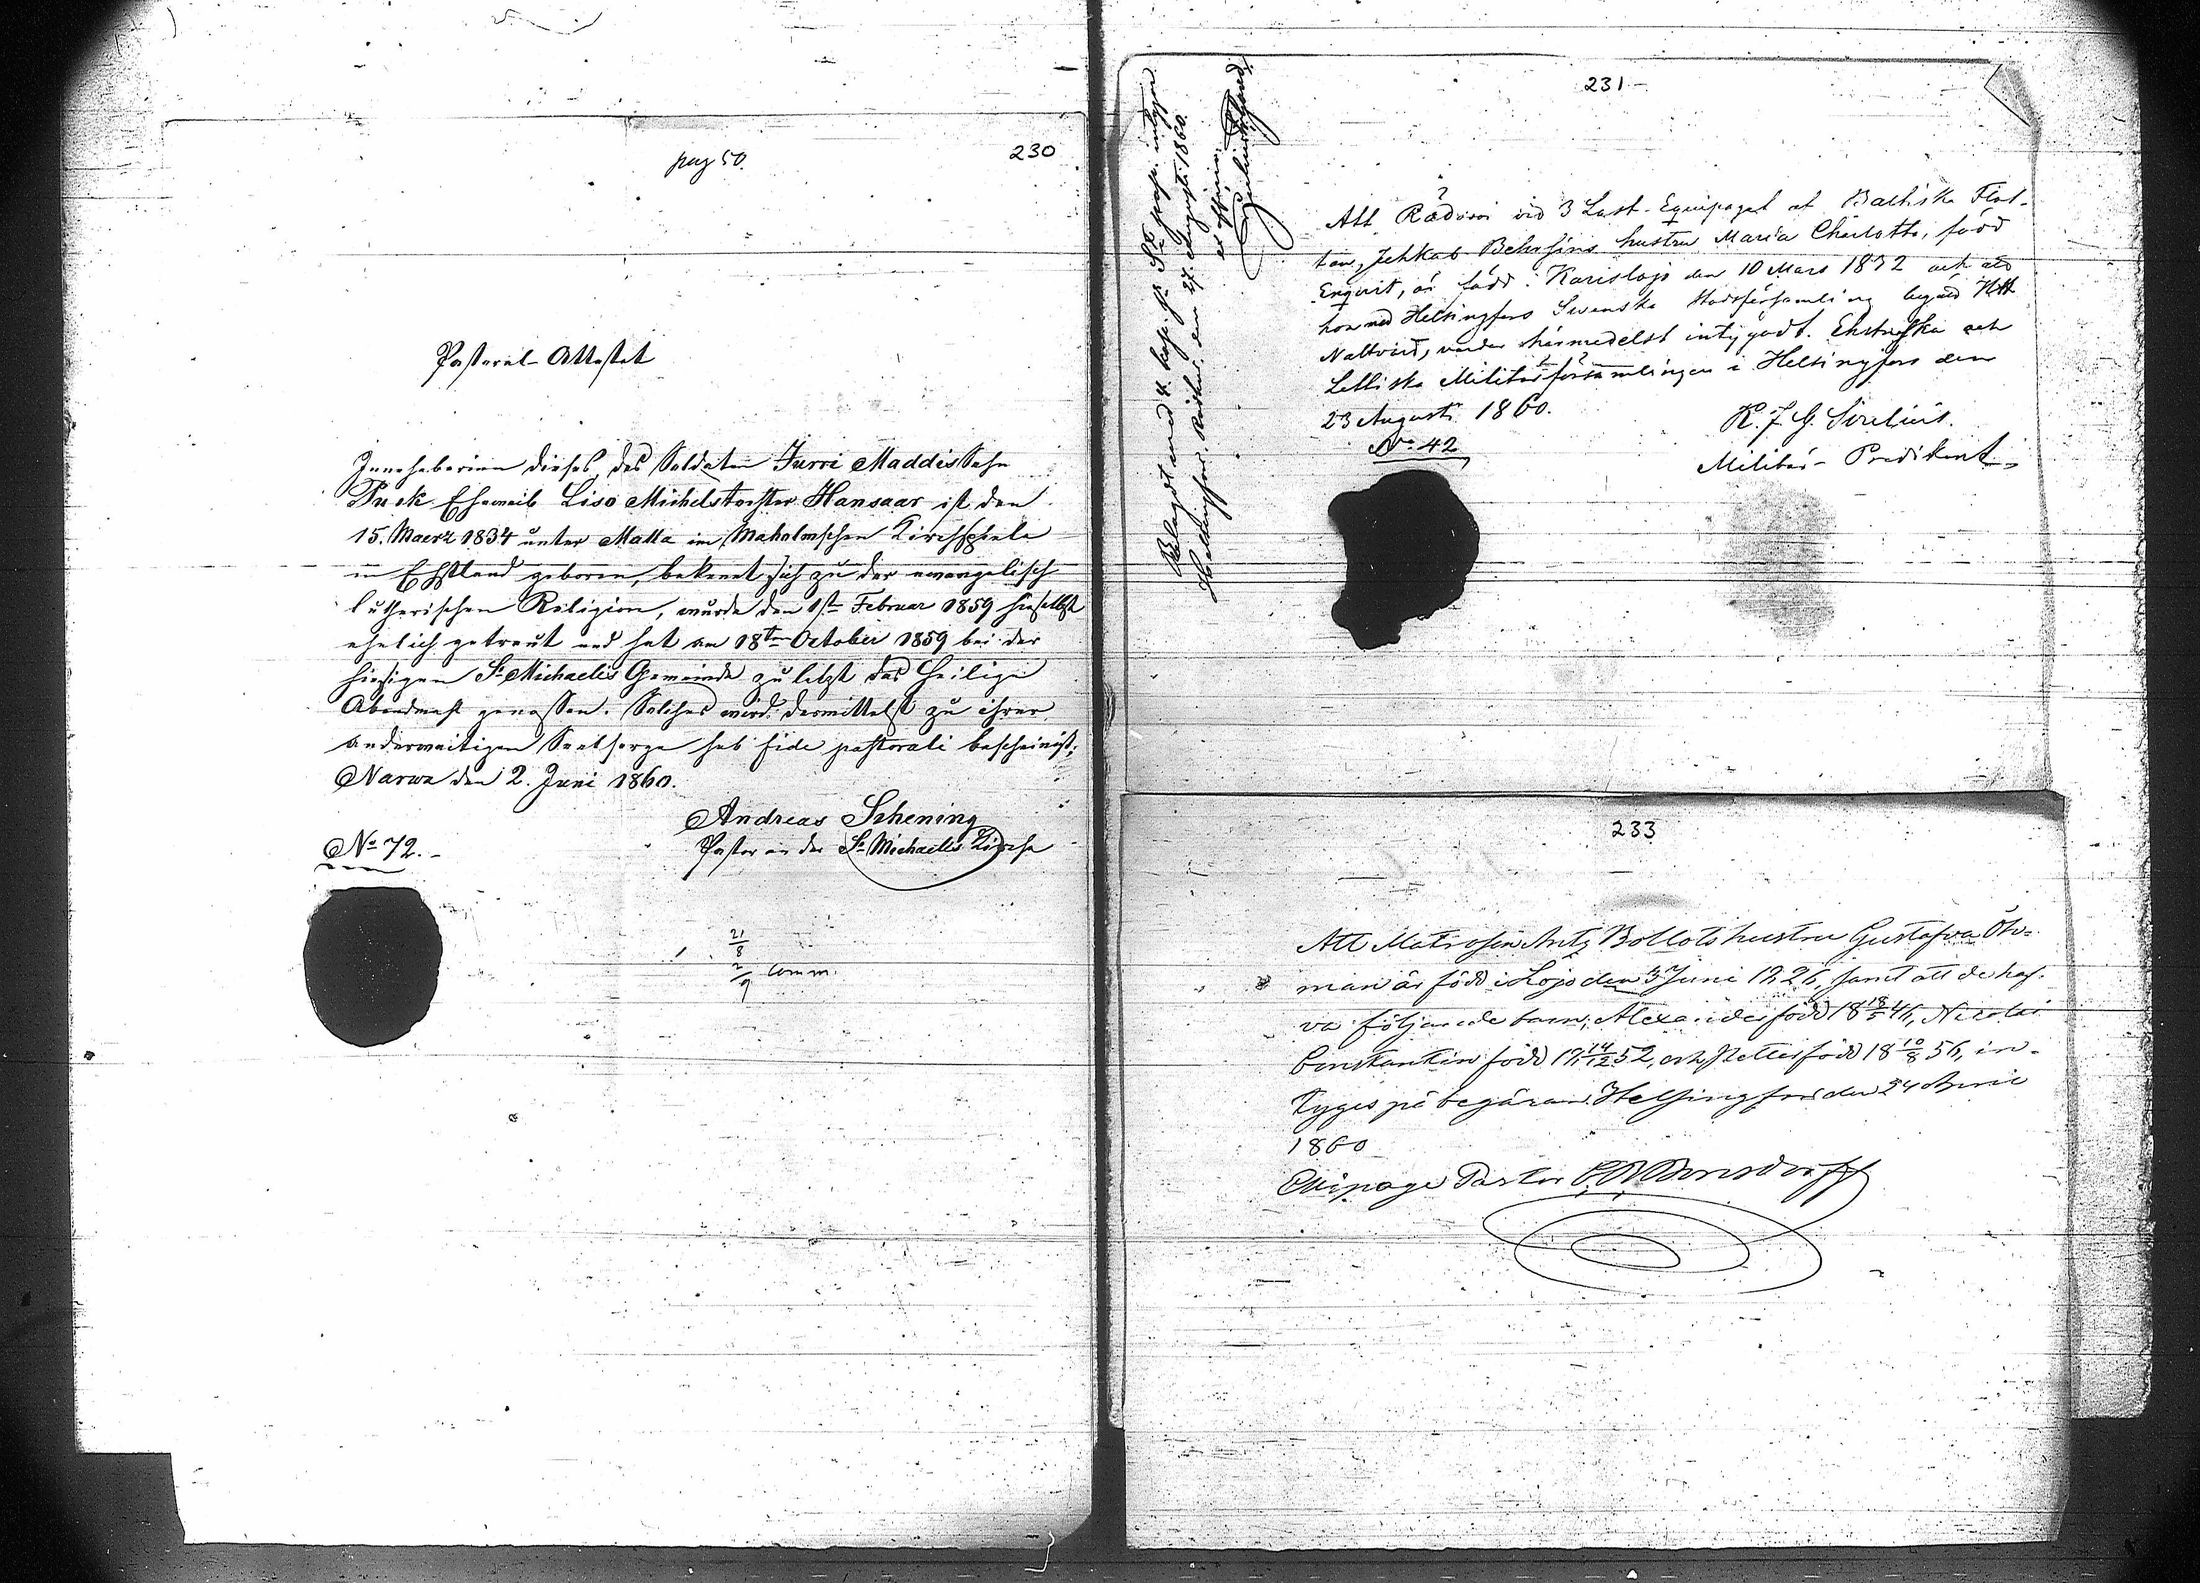 pag 50.
230
Pastoral-Attestat
Innehaberinn dieses, des Soldaten Jurri Maddissohn
Puck Eheweib Liso Michelstochter Hansaar ist den
15. Maerz 1834 unter Malla im Maholmschen Kirchspiele
in Ehstland geboren, bekennt sich zu der evangelisch
lutherischen Religion, wurde den 1sten Februar 1859 hieselbst
ehelich getraut und hat am 18ten October 1859 bei der
hiesigen St. Michaelis Gemeinde zuletzt das heilige
Abendmahl genossen. Solches wird desmittelst zu ihrer
anderweitigen Seelsorge sub fide pastorali bescheinigt.
Narwa den 2. Juni 1860.
Andreas Schening
Pastor an der St. Michaelis Kirche
No 72.
21/8
2/9 Comm.
231
Att vid 3 Last-Equipaget af Baltiska Flot-
tan, Jehkab Behrsins hustru Maria Charlotta, född
Enqvist, är född i Karislojo den 10 Mars 1832 och att
hon med Helsingfors Svenska Stadsförsamling begått H.H.
Nattvard, varder härmedelst intygadt. Ehstniska och
Lettiska Militärförsamlingen i Helsingfors den
23 Augusti 1860.
No 42
K. J. G. Sirelius.
Militär-Predikant
Belagdt med 4 kop. Sr pap. intygar
Helsingfors Rådhus, den 27 Augusti 1860.
ex officio
233
Att Matrosen Ants Bollots hustru Gustafva Öh-
man är född i Lojo den 3 Juni 1826, samt att de haf-
va följande barn; Alexander född 18 18/5 46, Nicolai
Constantin född 18 14/12 52, och född 18 10/8 56, in-
tygas på begäran. Helsingfors den 24 1860
Ekipage Pastor